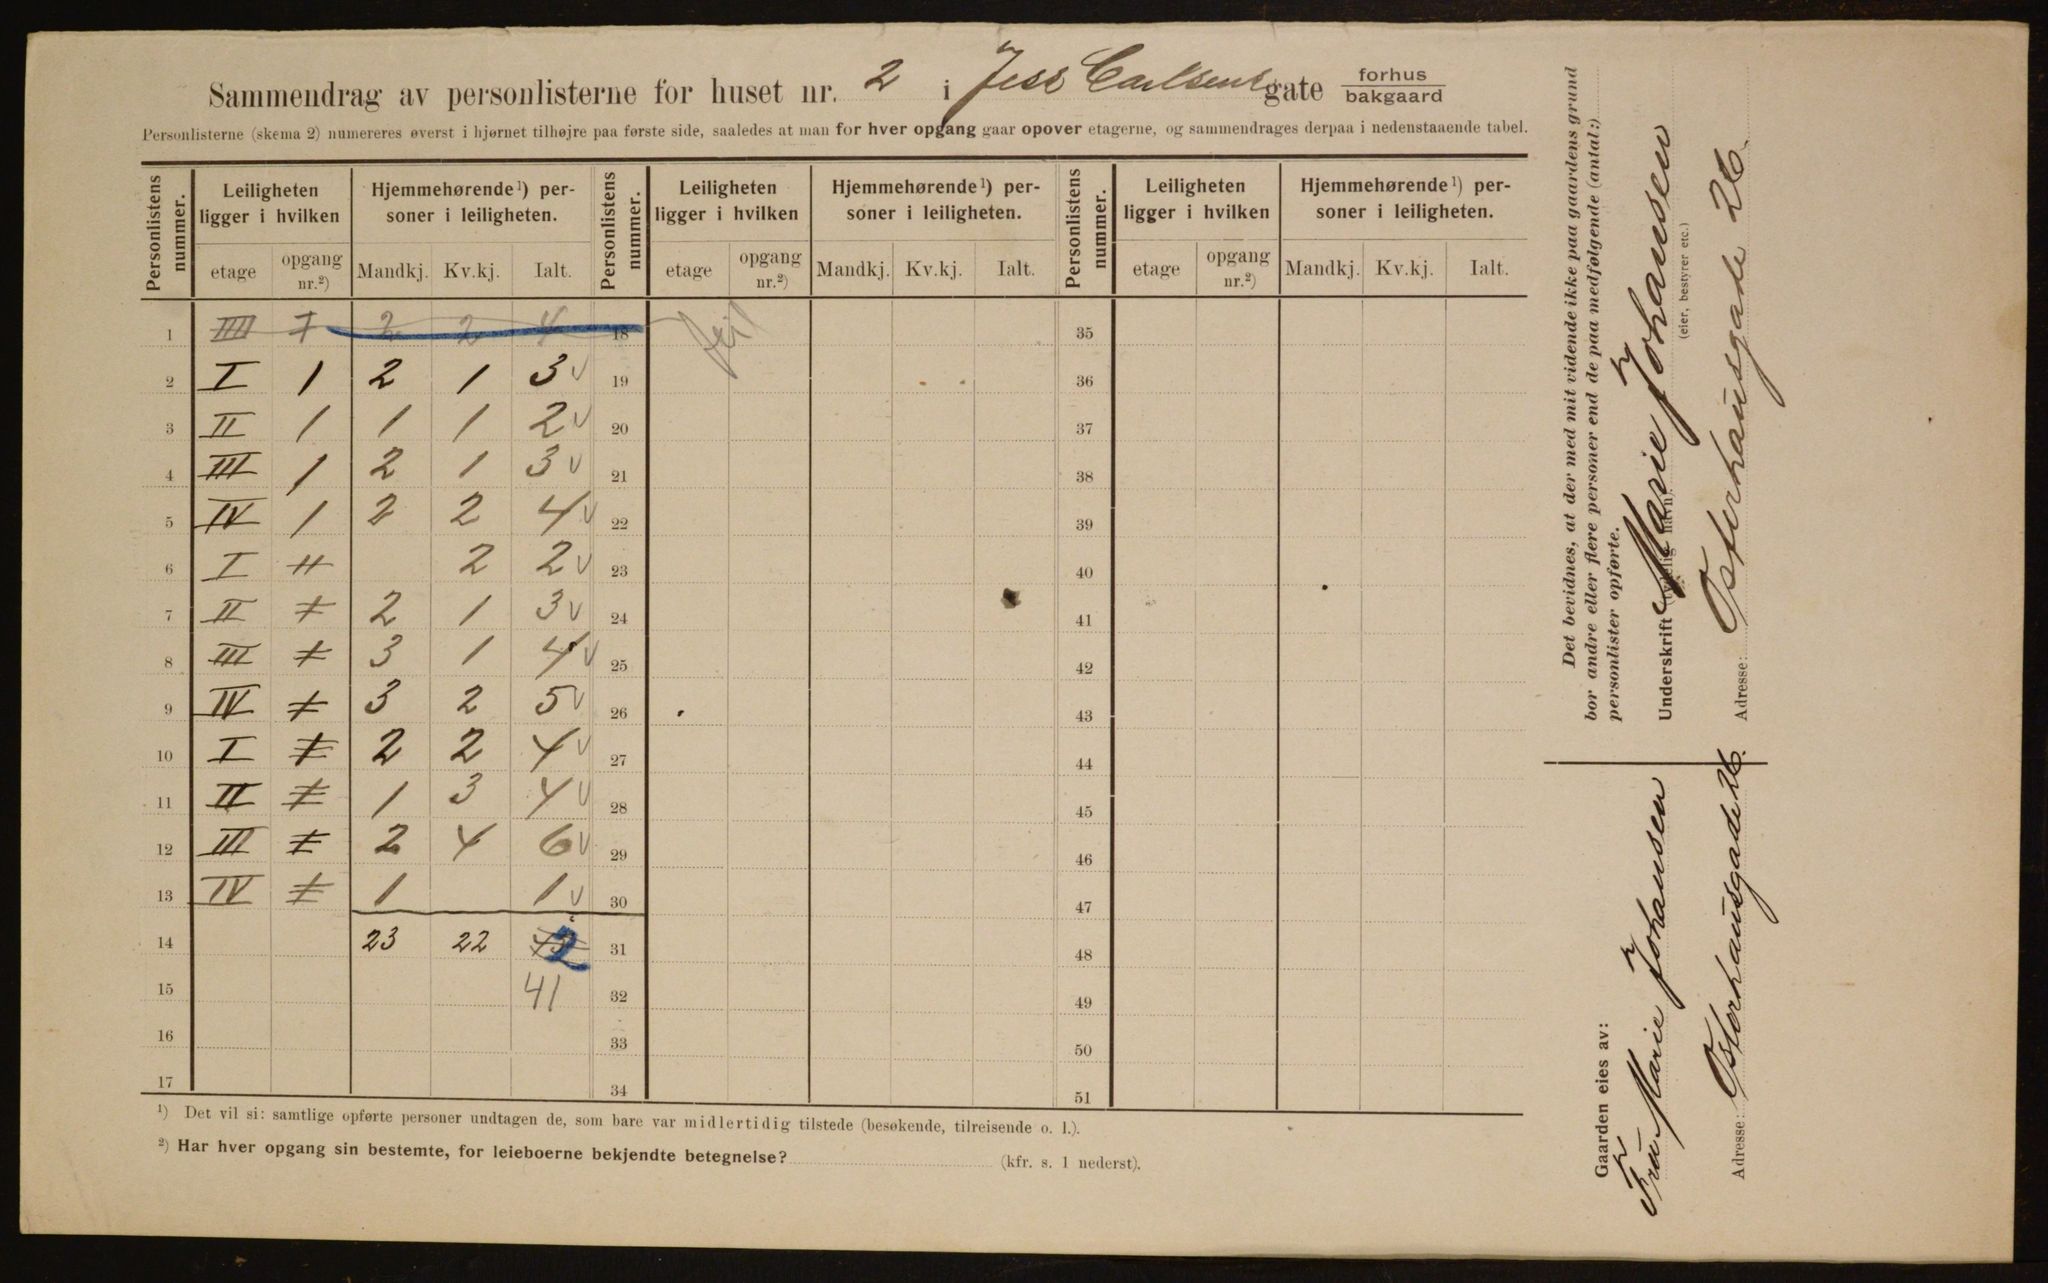 Sammendrag av personlisterne for huset nr. 2 i Jess Carlsens gate forhus bakgaard
Personlisterne (skema 2) numereres øverst i hjørnet tilhøjre paa første side, saaledes at man for hver opgang gaar opover etagerne, og sammendrages derpaa i nedenstaaende tabel.
Personlistens nummer. Leiligheten ligger i hvilken Hjemmehørende¹) personer i leiligheten. Personlistens nummer. Leiligheten ligger i hvilken Hjemmehørende¹) personer i leiligheten. Personlistens nummer. Leiligheten ligger i hvilken Hjemmehørende¹) personer i leiligheten.
etage opgang nr.²) Mandkj. Kv.kj. Ialt. etage opgang nr.²) Mandkj. Kv.kj. Ialt. etage opgang nr.²) Mandkj. Kv.kj. Ialt.
1 IIII I 2 2 4 18 feil 35
2 I 1 2 1 3 v 19 36
3 II 1 1 1 2 v 20 37
4 III 1 2 1 3 v 21 38
5 IV 1 2 2 4 v 22 39
6 I II 2 2 v 23 40
7 II II 2 1 3 v 24 41
8 III II 3 1 4 v 25 42
9 IV II 3 2 5 v 26 43
10 I III 2 2 4 v 27 44
11 II III 1 3 4 v 28 45
12 III III 2 4 6 v 29 46
13 IV III 1 1 v 30 47
14 23 22 2 31 48
15 41 32 49
16 33 50
17 34 51
¹) Det vil si: samtlige opførte personer undtagen de, som bare var midlertidig tilstede (besøkende, tilreisende o. l.).
²) Har hver opgang sin bestemte, for leieboerne bekjendte betegnelse? (kfr. s. 1 nederst).
Det bevidnes, at der med mit vidende ikke paa gaardens grund
bor andre eller flere personer end de paa medfølgende (antal:)
personlister opførte.
Underskrift (tydelig navn): Marie Johansen
(eier, bestyrer etc.)
Adresse: Osterhausgade 26.
Gaarden eies av:
Fru Marie Johansen
Adresse: Osterhausgade 26.